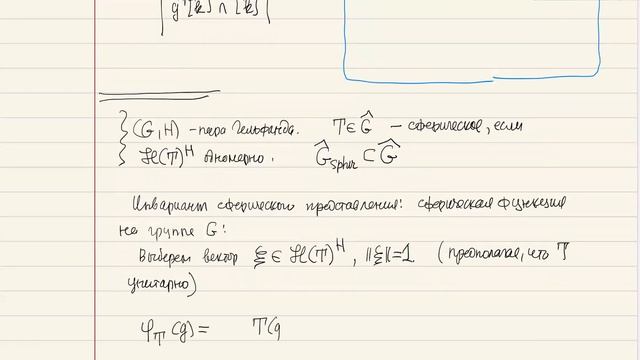 g'[k] ∩ [k]
(G, H) – пара Гельфанда. T ∈ Ĝ – сферическое, если
ℋ(T)^H одномерно. Ĝ_spher ⊂ Ĝ
Инвариант сферического представления: сферическая функция
на группе G:
Выберем вектор ξ ∈ ℋ(T)^H, ||ξ||=1 (предполагая, что T
унитарно)
φ_T(g) = T(g